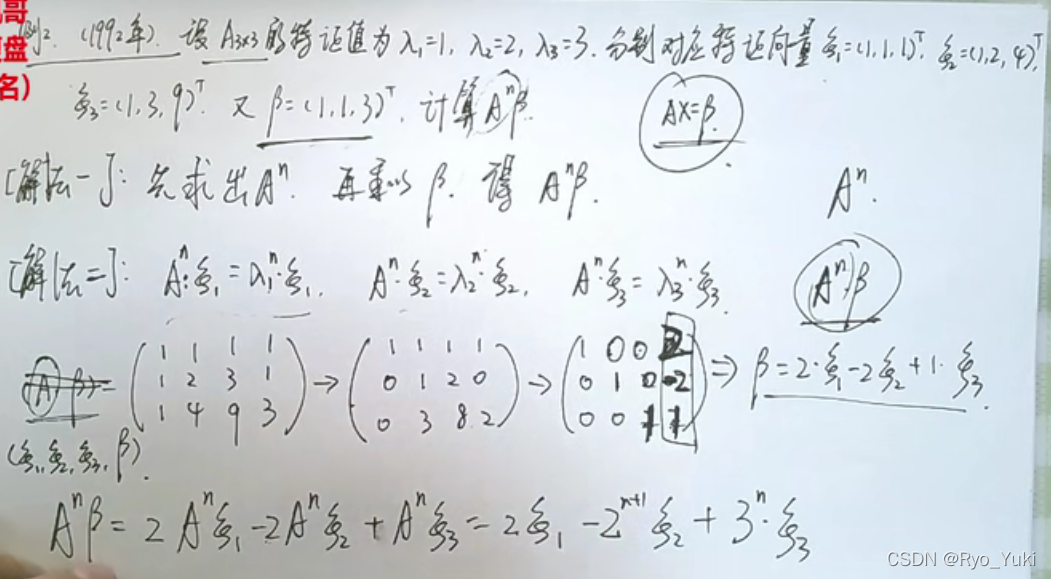 哥
盘
名)
例2. (1992年). 设 A₃ₓ₃ 的特征值为 λ₁=1, λ₂=2, λ₃=3. 分别对应特征向量 ξ₁=(1,1,1)ᵀ. ξ₂=(1,2,4)ᵀ,
ξ₃=(1,3,9)ᵀ. 又 β=(1,1,3)ᵀ. 计算 Aⁿβ. AX=β.
[解法一]: 先求出Aⁿ. 再乘以 β. 得 Aⁿβ. Aⁿ.
[解法二]: Aⁿ·ξ₁=λ₁ⁿ·ξ₁. Aⁿ·ξ₂=λ₂ⁿ·ξ₂. Aⁿ·ξ₃=λ₃ⁿ·ξ₃. Aⁿ·β
(A β)= (1 1 1 1 → (1 1 1 1 → (1 0 0 2 ⇒ β=2·ξ₁-2ξ₂+1·ξ₃.
1 2 3 1 0 1 2 0 0 1 0 -2
1 4 9 3) 0 3 8 2) 0 0 1 1)
(ξ₁,ξ₂,ξ₃,β).
Aⁿβ=2Aⁿξ₁-2Aⁿξ₂+Aⁿξ₃=2ξ₁-2ⁿ⁺¹ξ₂+3ⁿ·ξ₃
CSDN @Ryo_Yuki